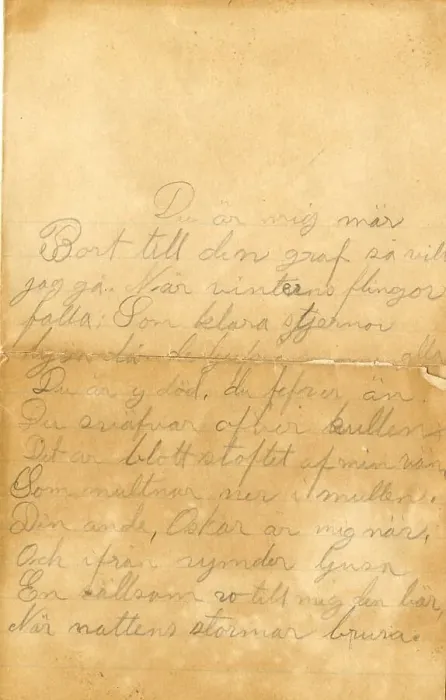 Du är mig när
Bort till den graf så vill
jag gå. När vinterns flingor
falla; Som klara stjernor
Du är ej död, du lefver än
Du sväfvar öfver kullen
Det är blott stoftet af min vän
Som multnar ner i mullen.
Din ande, Oskar är mig när,
Och ifrån rymder ljusa
En sällsam ro till mig den bär,
När nattens stormar brusa.